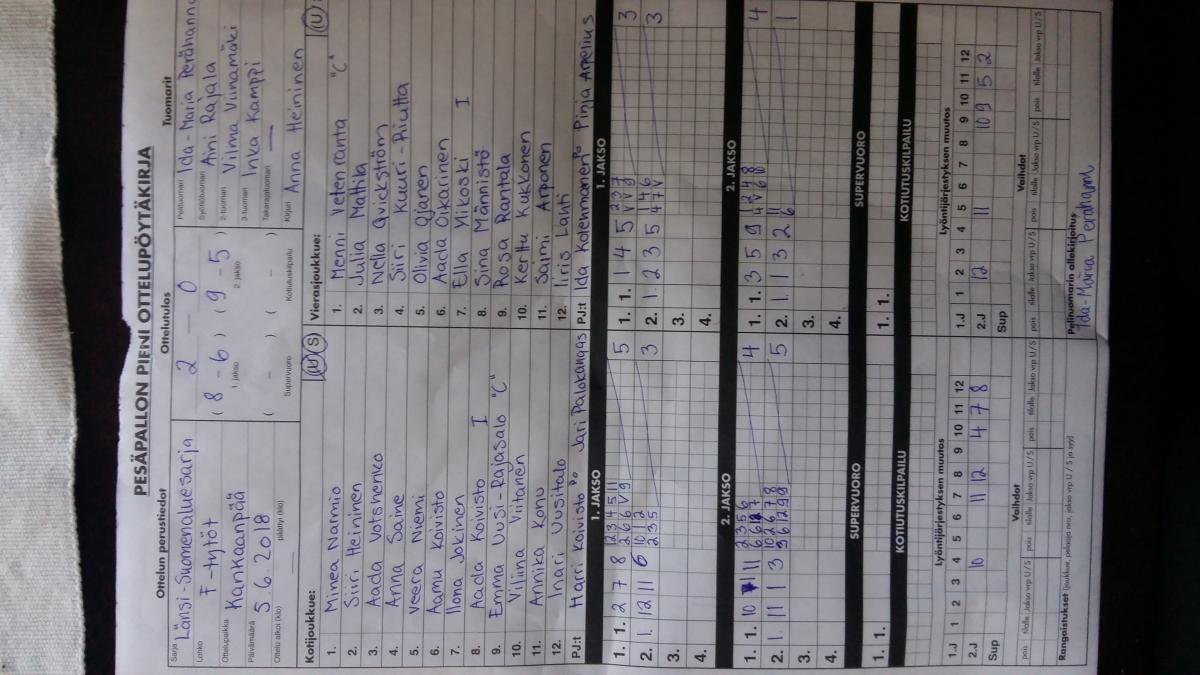 PESÄPALLON PIENI OTTELUPÖYTÄKIRJA
Ottelun perustiedot
Sarja Länsi-Suomenaluesarja
Lohko F-tytöt
Ottelupaikka Kankaanpää
Päivämäärä 5.6.2018
Ottelu alkoi (klo) päättyi (klo)
Ottelutulos
2 — 0
( 8 - 6 ) ( 9 - 5 )
1. jakso 2. jakso
( - ) ( - )
Supervuoro Kotiutuskilpailu
Tuomarit
Pelituomari Ida-Maria Perähanno
Syöttötuomari Aini Rajala
2-tuomari Vilma Viinamäki
3-tuomari Inka Kamppi
Takarajatuomari —
Kirjuri Anna Heininen
Kotijoukkue: U S
1. Minea Narmio
2. Siiri Heininen
3. Aada Votshenko
4. Anna Saine
5. Veera Niemi
6. Aamu Koivisto
7. Ilona Jokinen
8. Aada Koivisto I
9. Emma Uusi-Rajasalo "C"
10. Viliina Viitanen
11. Annika Konu
12. Inari Uusitalo
PJ:t Harri Koivisto Jari Palokangas
Vierasjoukkue: U
1. Menni Vetenranta "C"
2. Julia Mattila
3. Nella Qvickström
4. Siiri Kuuri-Riutta
5. Olivia Ojanen
6. Aada Oikarinen
7. Ella Ylikoski I
8. Sina Männistö
9. Rosa Rantala
10. Kerttu Kukkonen
11. Saimi Arponen
12. Iiris Lahti
PJ:t Ida Kolehmainen Pinja Apelius
1. JAKSO 1. JAKSO
1. 1. 2 7 8 5
2. 1. 12 11 6 3
3.
4.
1. 1. 1 4 5 3
2. 1. 2 3 5 3
3.
4.
2. JAKSO 2. JAKSO
1. 1. 10 11 4
2. 1. 11 1 3 5
3.
4.
1. 1. 3 5 9 4
2. 1. 1 3 2 1
3.
4.
SUPERVUORO SUPERVUORO
1. 1. 1. 1.
KOTIUTUSKILPAILU KOTIUTUSKILPAILU
Lyöntijärjestyksen muutos
1.J 1 2 3 4 5 6 7 8 9 10 11 12
2.J 10 11 12 4 7 8
Sup
Lyöntijärjestyksen muutos
1.J 1 2 3 4 5 6 7 8 9 10 11 12
2.J 12 11 10 9 5 2
Sup
Vaihdot Vaihdot
pois tilalle Jakso vrp U/S pois tilalle Jakso vrp U/S pois tilalle Jakso vrp U/S
pois tilalle Jakso vrp U/S pois tilalle Jakso vrp U/S pois tilalle Jakso vrp U/S
Rangaistukset (joukkue, pelaaja nro, jakso vrp U / S ja syy)
Pelituomarin allekirjoitus
Ida-Maria